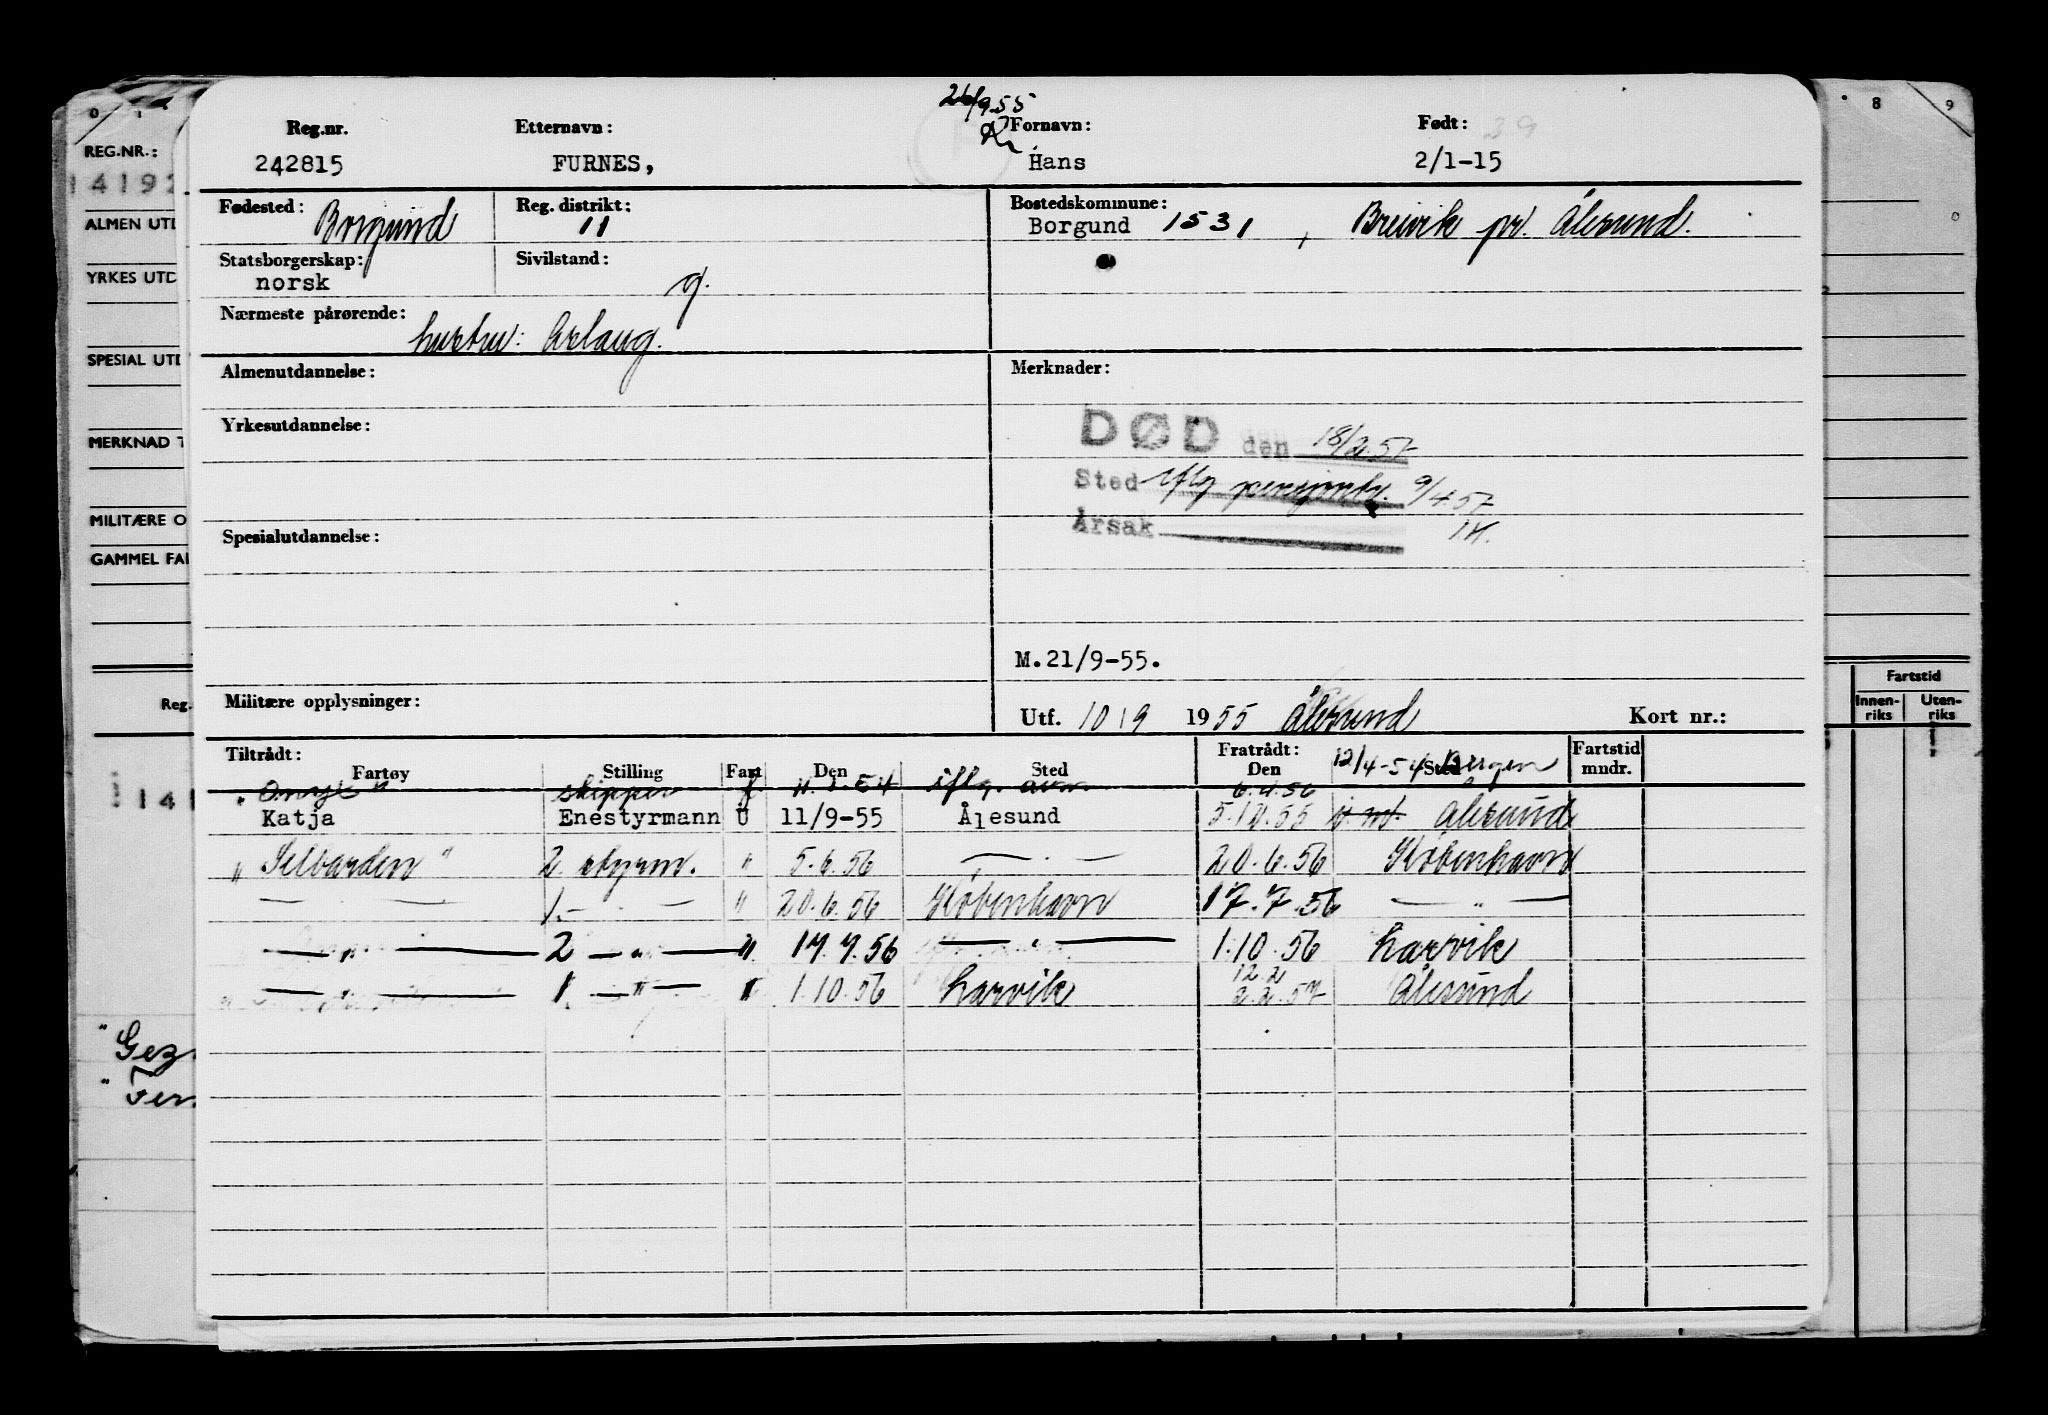 26/9.55
Reg.nr. Etternavn: Fornavn: Født:
242815 FURNES, Hans 2/1-15
Fødested: Borgund Reg. distrikt: 11 Bostedskommune: Borgund 1531, Breivik pr. Ålesund.
Statsborgerskap: norsk Sivilstand: g.
Nærmeste pårørende: hustru: Aslaug.
Almenutdannelse: Merknader:
Yrkesutdannelse:
DØD den 18/2.57
Sted iflg pensjonstr. 9/4.57
Årsak I.H.
Spesialutdannelse:
M.21/9-55.
Militære opplysninger: Utf. 10/9 1955 Ålesund Kort nr.:
Tiltrådt: Fratrådt: Fartstid
Fartøy Stilling Fart Den Sted Den Sted mndr.
skipper f iflg. 12/4-54 Bergen
6.4.56
Katja Enestyrmann U 11/9-55 Ålesund 5.12.55 Ålesund
" Selbarden " 2. styrm. " 5.6.56 — . — 20.6.56 København
— . — 1. — . — " 20.6.56 København 17.7.56 — " —
— " — 2 — " — " 17.7.56 — " — 1.10.56 Larvik
— " — 1 — " — " 1.10.56 Larvik 12.2 2.2.57 Ålesund
0 1
REG.NR.:
14192
ALMEN UTD
YRKES UTD
SPESIAL UTD
MERKNAD T
MILITÆRE O
GAMMEL FA
Reg.
141
" Gez
" Fer
8 9
Fartstid
Innen-riks Uten-riks